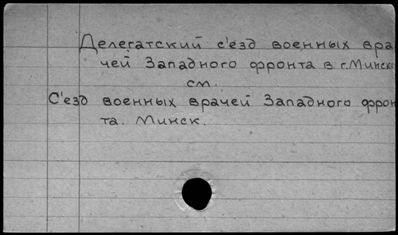 Делегатский с'езд военных вра
чей Западного фронта в г.Минске
см.
С'езд военных врачей Западного фрон
та. Минск.